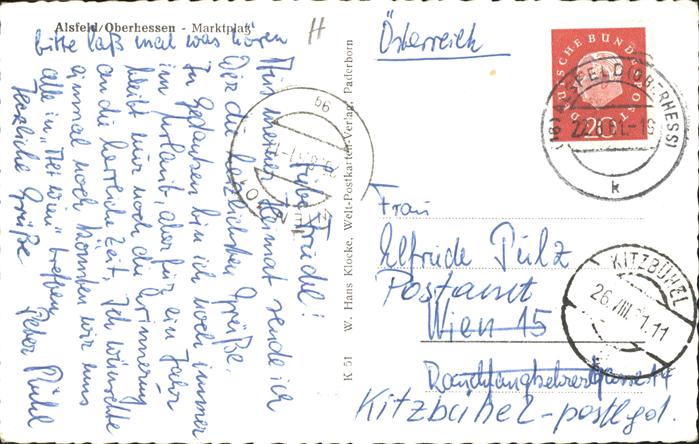 Alsfeld/Oberhessen - Marktplatz
Liebe Friedel!
Aus meiner Heimat sende ich
Dir die herzlichsten Grüße.
In Gedanken bin ich noch immer
im Urlaub, aber für ein Jahr
bleibt nur noch die Erinnerung
an die herrliche Zeit. Ich wünschte
einmal noch könnten wir uns
alle in "Wien" treffen
Herzliche Grüße
Peter
bitte laß mal was hören
K 51 W. Hans Klocke, Welt-Postkarten-Verlag, Paderborn
Österreich
DEUTSCHE BUNDESPOST
20
(16) ALSFELD (OBERHESS)
k
Frau
Elfriede Pülz
Postamt
Wien 15
Rauchfangkehrergasse 14
Kitzbühel - postlgd.
KITZBÜHEL
26.VIII.61.11
WIEN